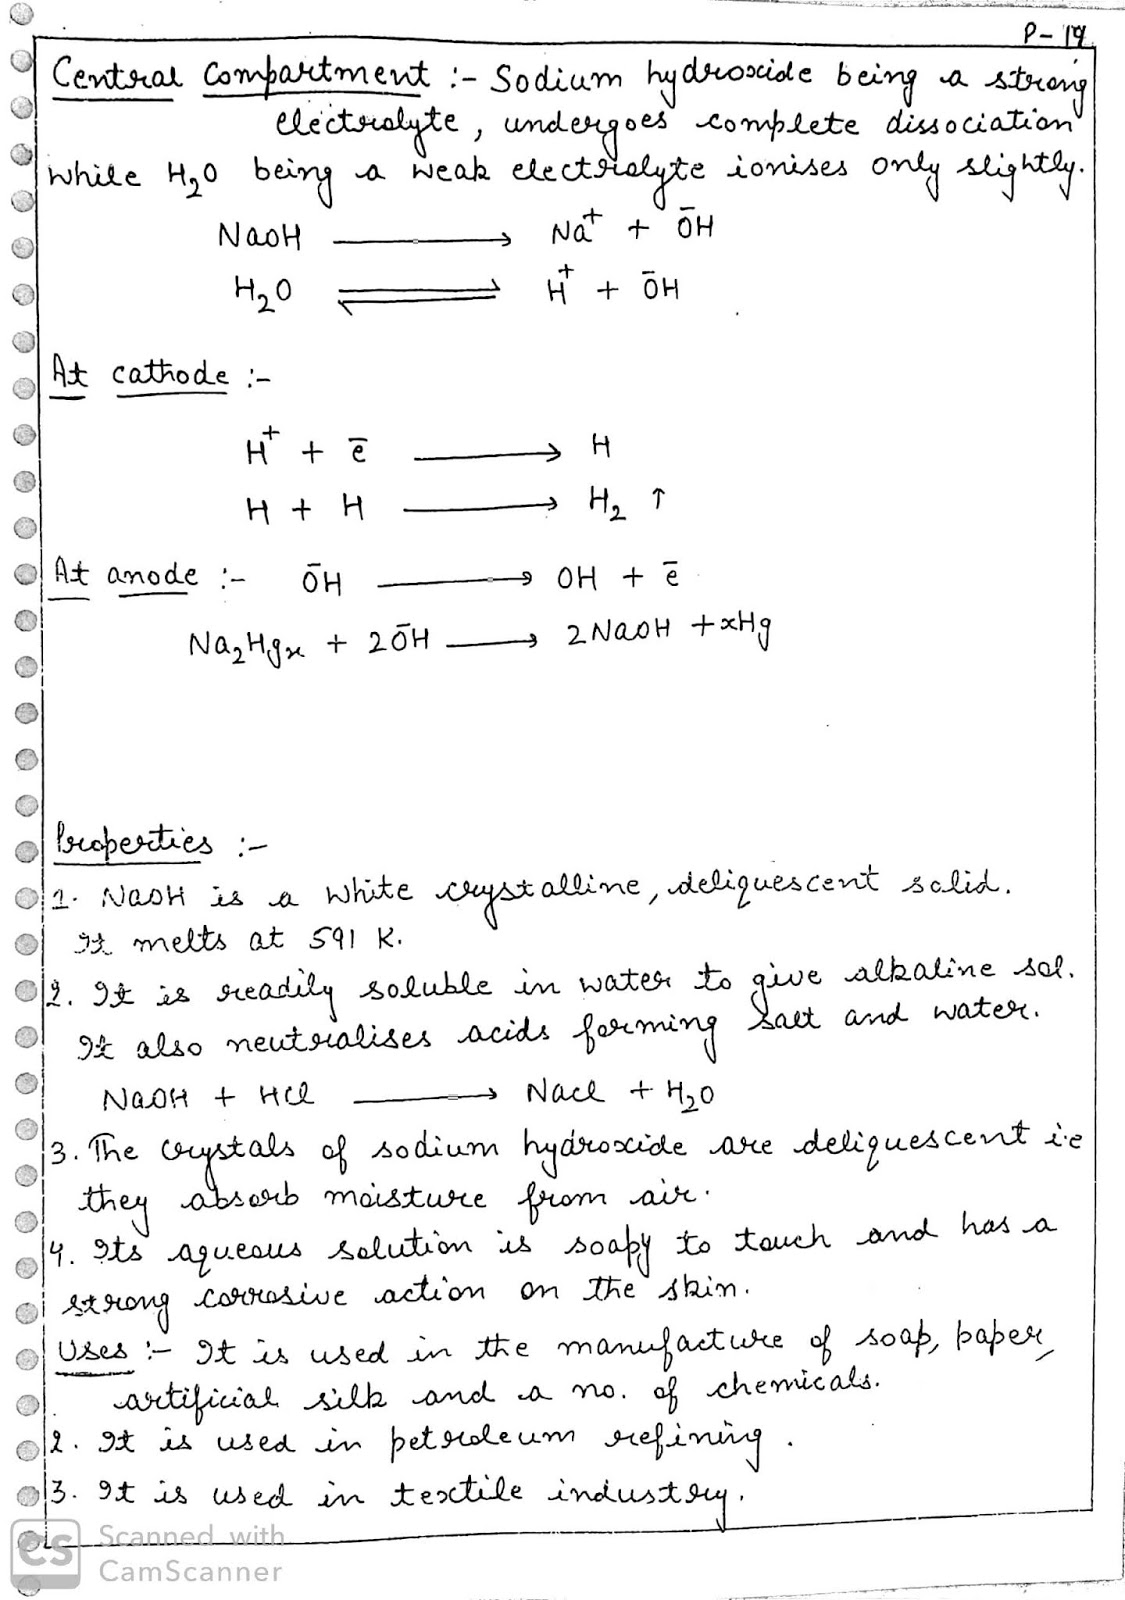 P-19
Central Compartment :- Sodium hydroxide being a strong
electrolyte, undergoes complete dissociation
while H₂O being a weak electrolyte ionises only slightly.
NaOH ⟶ Na⁺ + ŌH
H₂O ⇌ H⁺ + ŌH
At cathode :-
H⁺ + ē ⟶ H
H + H ⟶ H₂ ↑
At anode :- ŌH ⟶ OH + ē
Na₂Hgx + 2ŌH ⟶ 2NaOH + xHg
Properties :-
1. NaOH is a white crystalline, deliquescent solid.
It melts at 591 K.
2. It is readily soluble in water to give alkaline sol.
It also neutralises acids forming salt and water.
NaOH + HCl ⟶ Nacl + H₂O
3. The crystals of sodium hydroxide are deliquescent i.e
they absorb moisture from air.
4. Its aqueous solution is soapy to touch and has a
strong corrosive action on the skin.
Uses :- It is used in the manufacture of soap, paper,
artificial silk and a no. of chemicals.
2. It is used in petroleum refining.
3. It is used in textile industry.
CS Scanned with
CamScanner